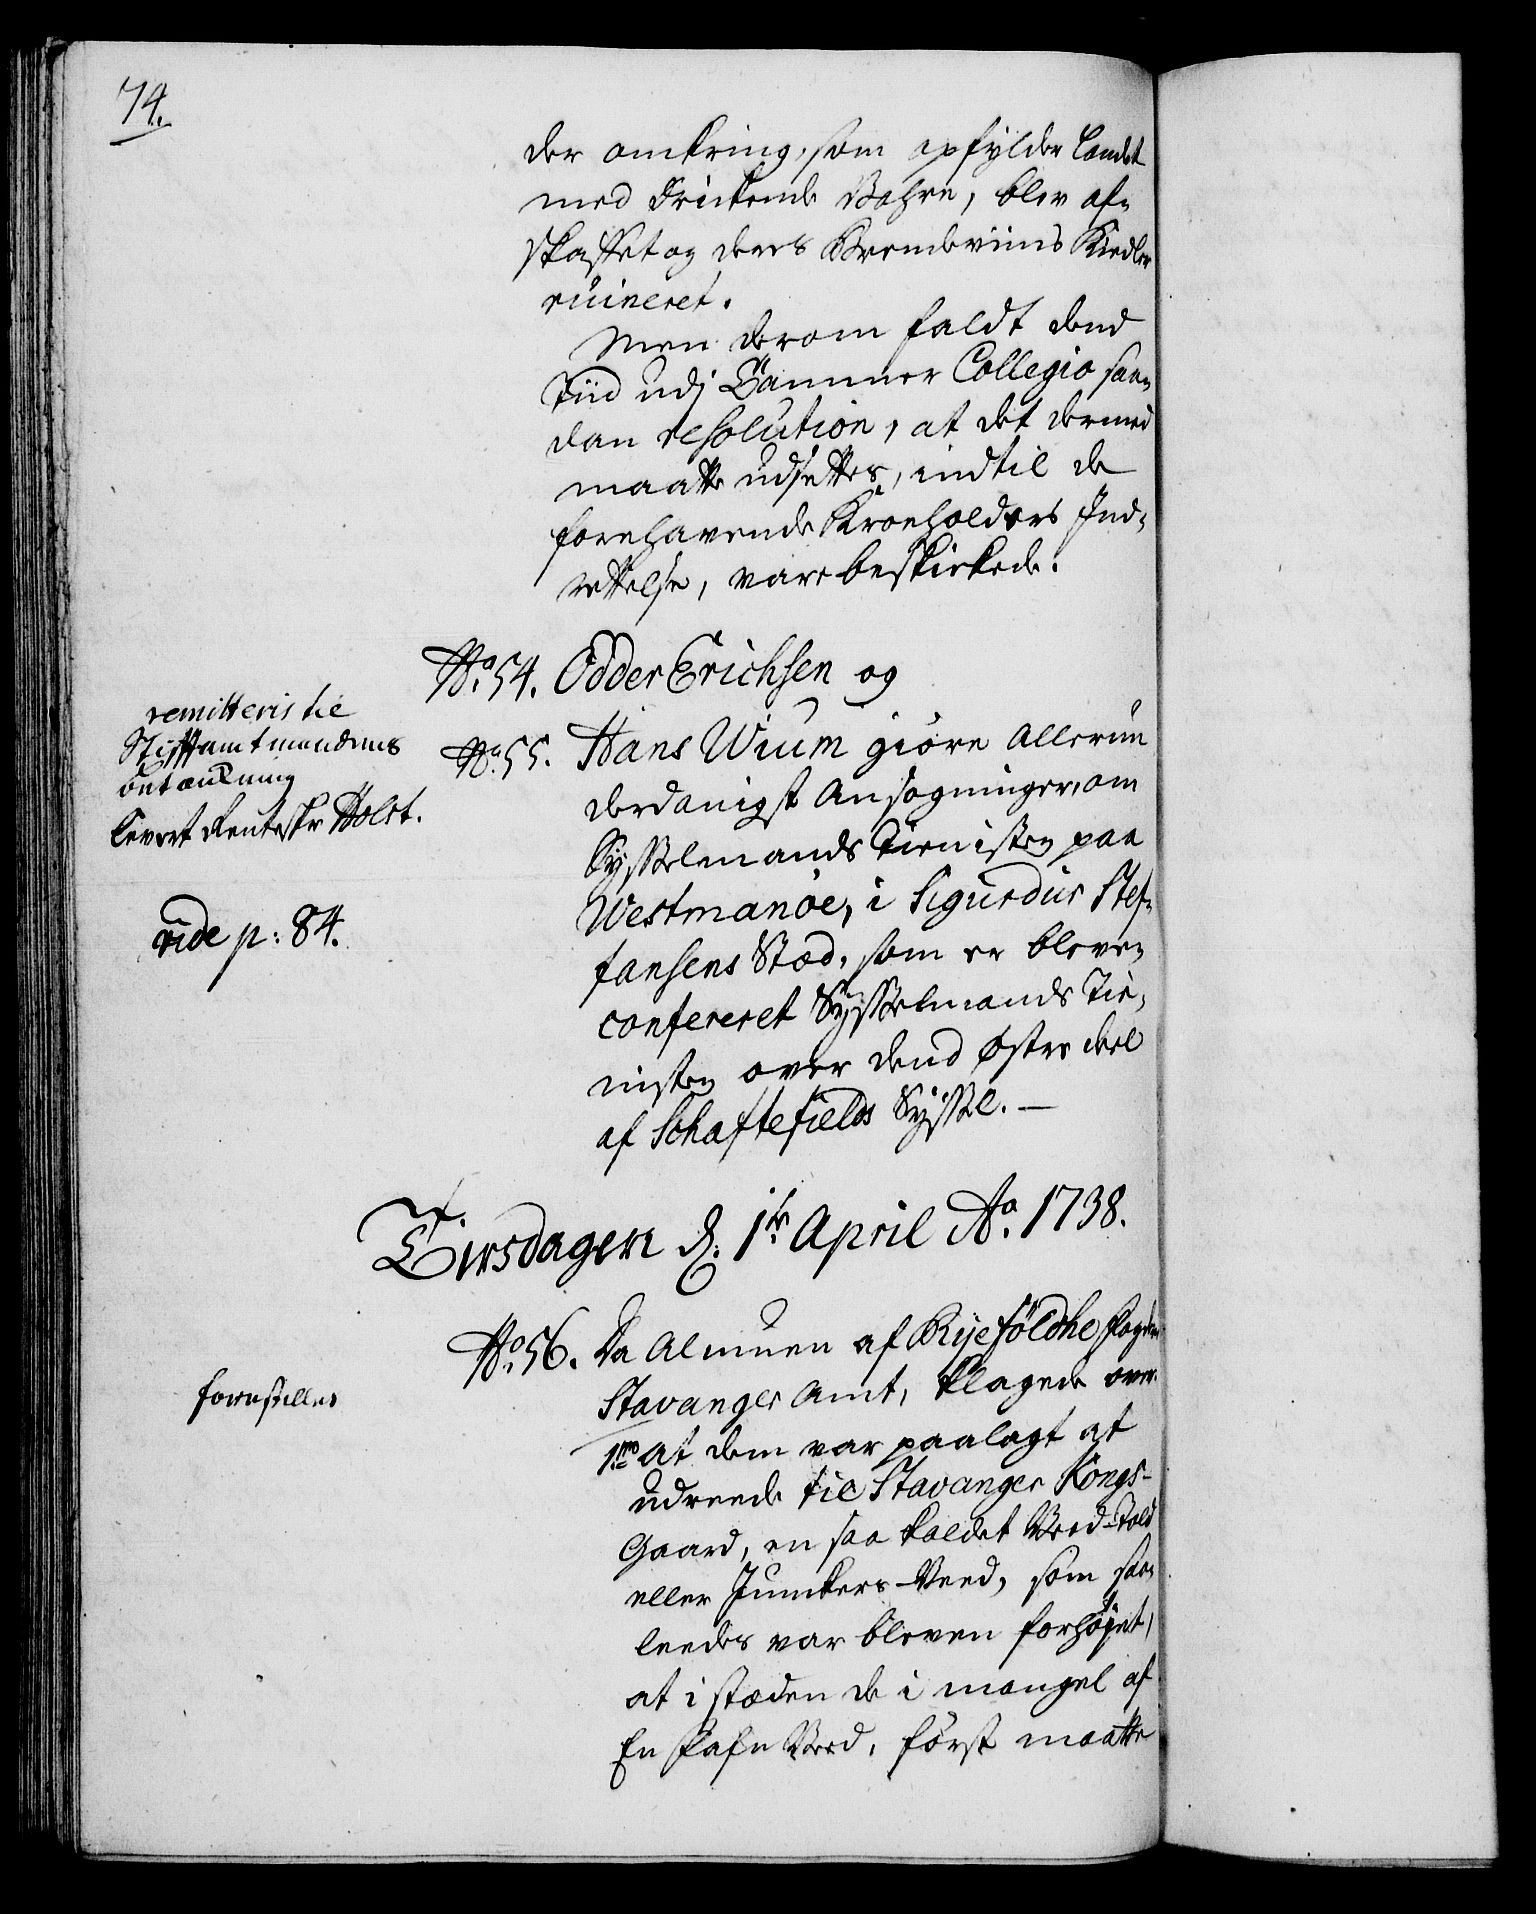 74.
der omkring, som opfylder Landet
med Drickende Vahre, blev af-
skaffet og deres Brendeviins Kiedler
ruineret.
Men derom faldt dend
Tiid udj Cammer Collegio saa-
dan resolution, at det dermed
maatte udsettes, indtil de
forehavende Kroeholders Ind-
rettelse, vare beskickede.
No. 54. Odder Erichsen og
remitteris til
Stiftamtmandens
betænkning
Levert Renteskr Holst.
No. 55. Hans Wium giøre Allerun
derdanigst Ansøgninger, om
Sysselmands Tienisten paa
Westmanøe, i Sigurdur Stef-
fansens Stæd, som er bleven
confereret Sysselmands Tie-
nisten over dend østre deel
af Schaftefields Syssel. —
vide p: 84.
Tirsdagen d. 1te April Ao. 1738.
No. 56. Da Almuen af Ryeföldke Fogderie
Stavanger Amt, klagede over
forestilles
1mo at dem var paalagt at
udreede til Stavanger Kongs-
Gaard, en saa kaldet Veed-Told
eller Junckers-Veed, som saa-
leedes var bleven forhöjet,
at i stæden de i mangel af
En Fafn Veed, först maatte